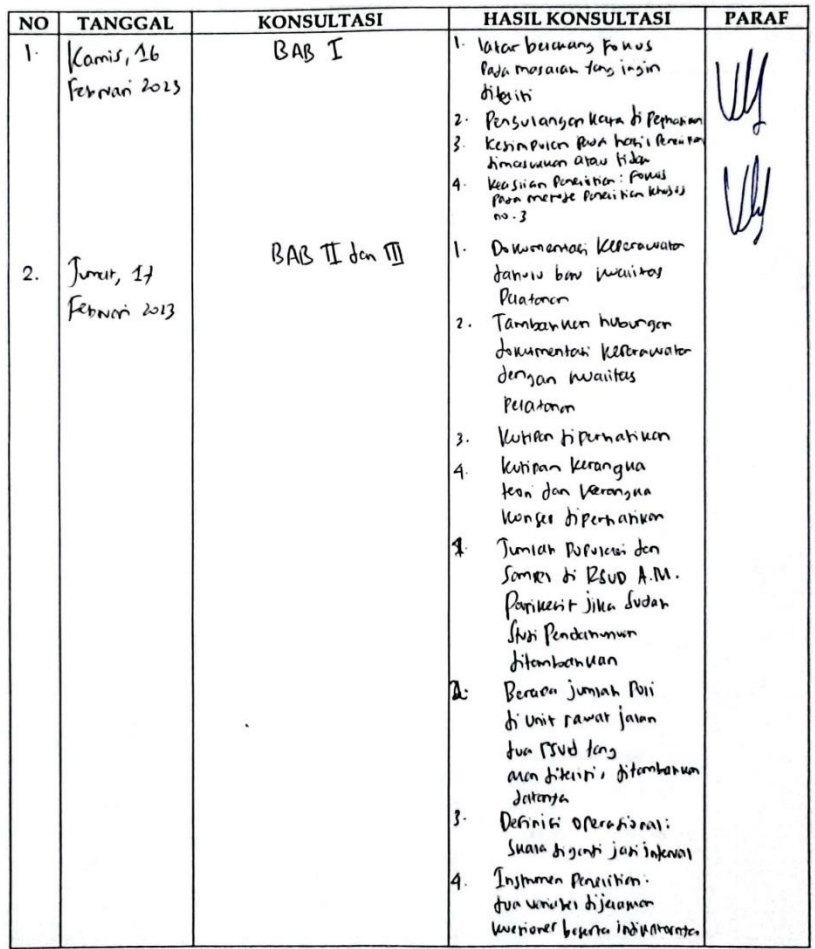 NO TANGGAL KONSULTASI HASIL KONSULTASI PARAF
1. Kamis, 16 Februari 2023
BAB I
1. latar belakang Fokus
pada masalah yang ingin
diteliti
2. Pengulangan kata di Perhatikan
3. Kesimpulan pada hasil Penelitian
dimasukkan atau tidak
4. Keaslian Penelitian: Fokus
pada metode Penelitian khusus
no. 3
2. Jumat, 17
Februari 2023
BAB II dan III
1. Dokumentasi Keperawatan
dahulu baru kualitas
Pelayanan
2. Tambahkan hubungan
dokumentasi Keperawatan
dengan kualitas
Pelayanan
3. Kutipan diperhatikan
4. kutipan kerangka
teori dan kerangka
konsep diperhatikan
1. Jumlah Populasi dan
Sampel di RSUD A.M.
Parikesit jika Sudah
Studi Pendahuluan
ditambahkan
2. Berapa jumlah Poli
di unit rawat jalan
dua RSUD yang
akan diteliti, ditambahkan
datanya
3. Definisi Operasional:
Skala diganti jadi interval
4. Instrumen Penelitian:
dua variabel dijelaskan
kuesioner beserta indikatornya